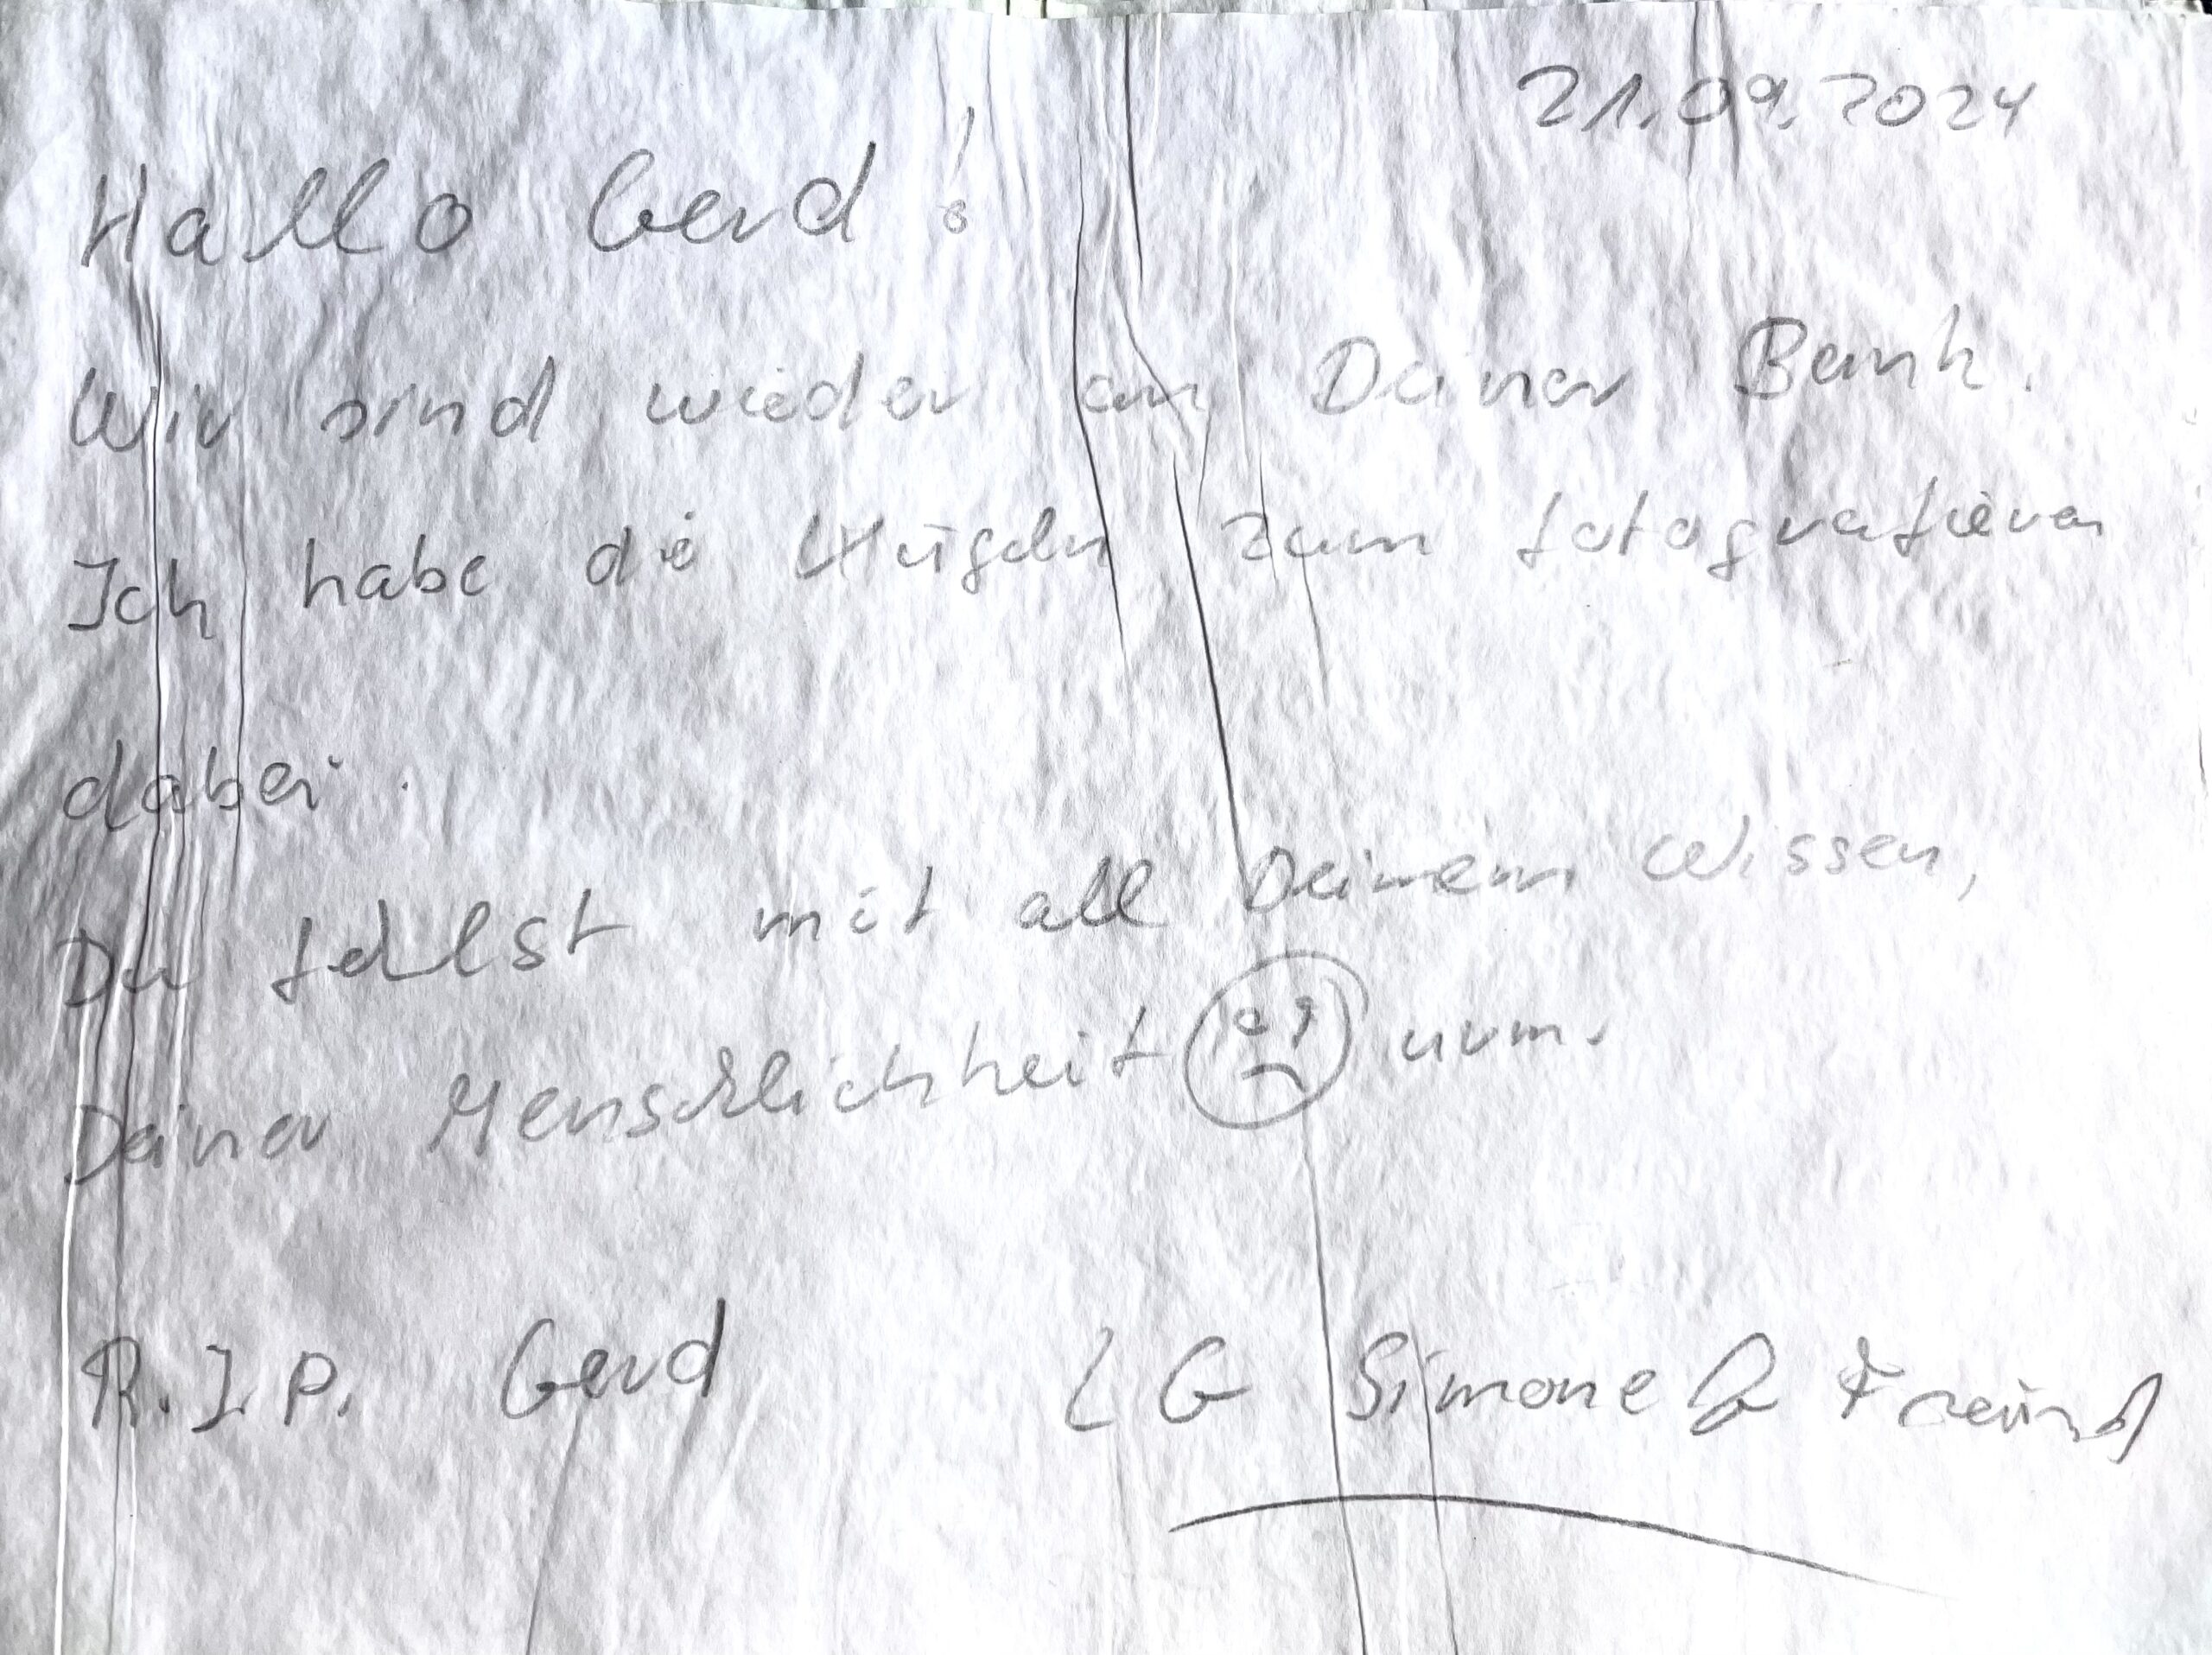 21.09.2024
Hallo Gerd!
Wir sind wieder an Deiner Bank.
Ich habe die Kugeln zum fotografieren
dabei.
Du fehlst mit all Deinem Wissen,
Deiner Menschlichkeit uvm.
R.I.P. Gerd LG Simone & Freund